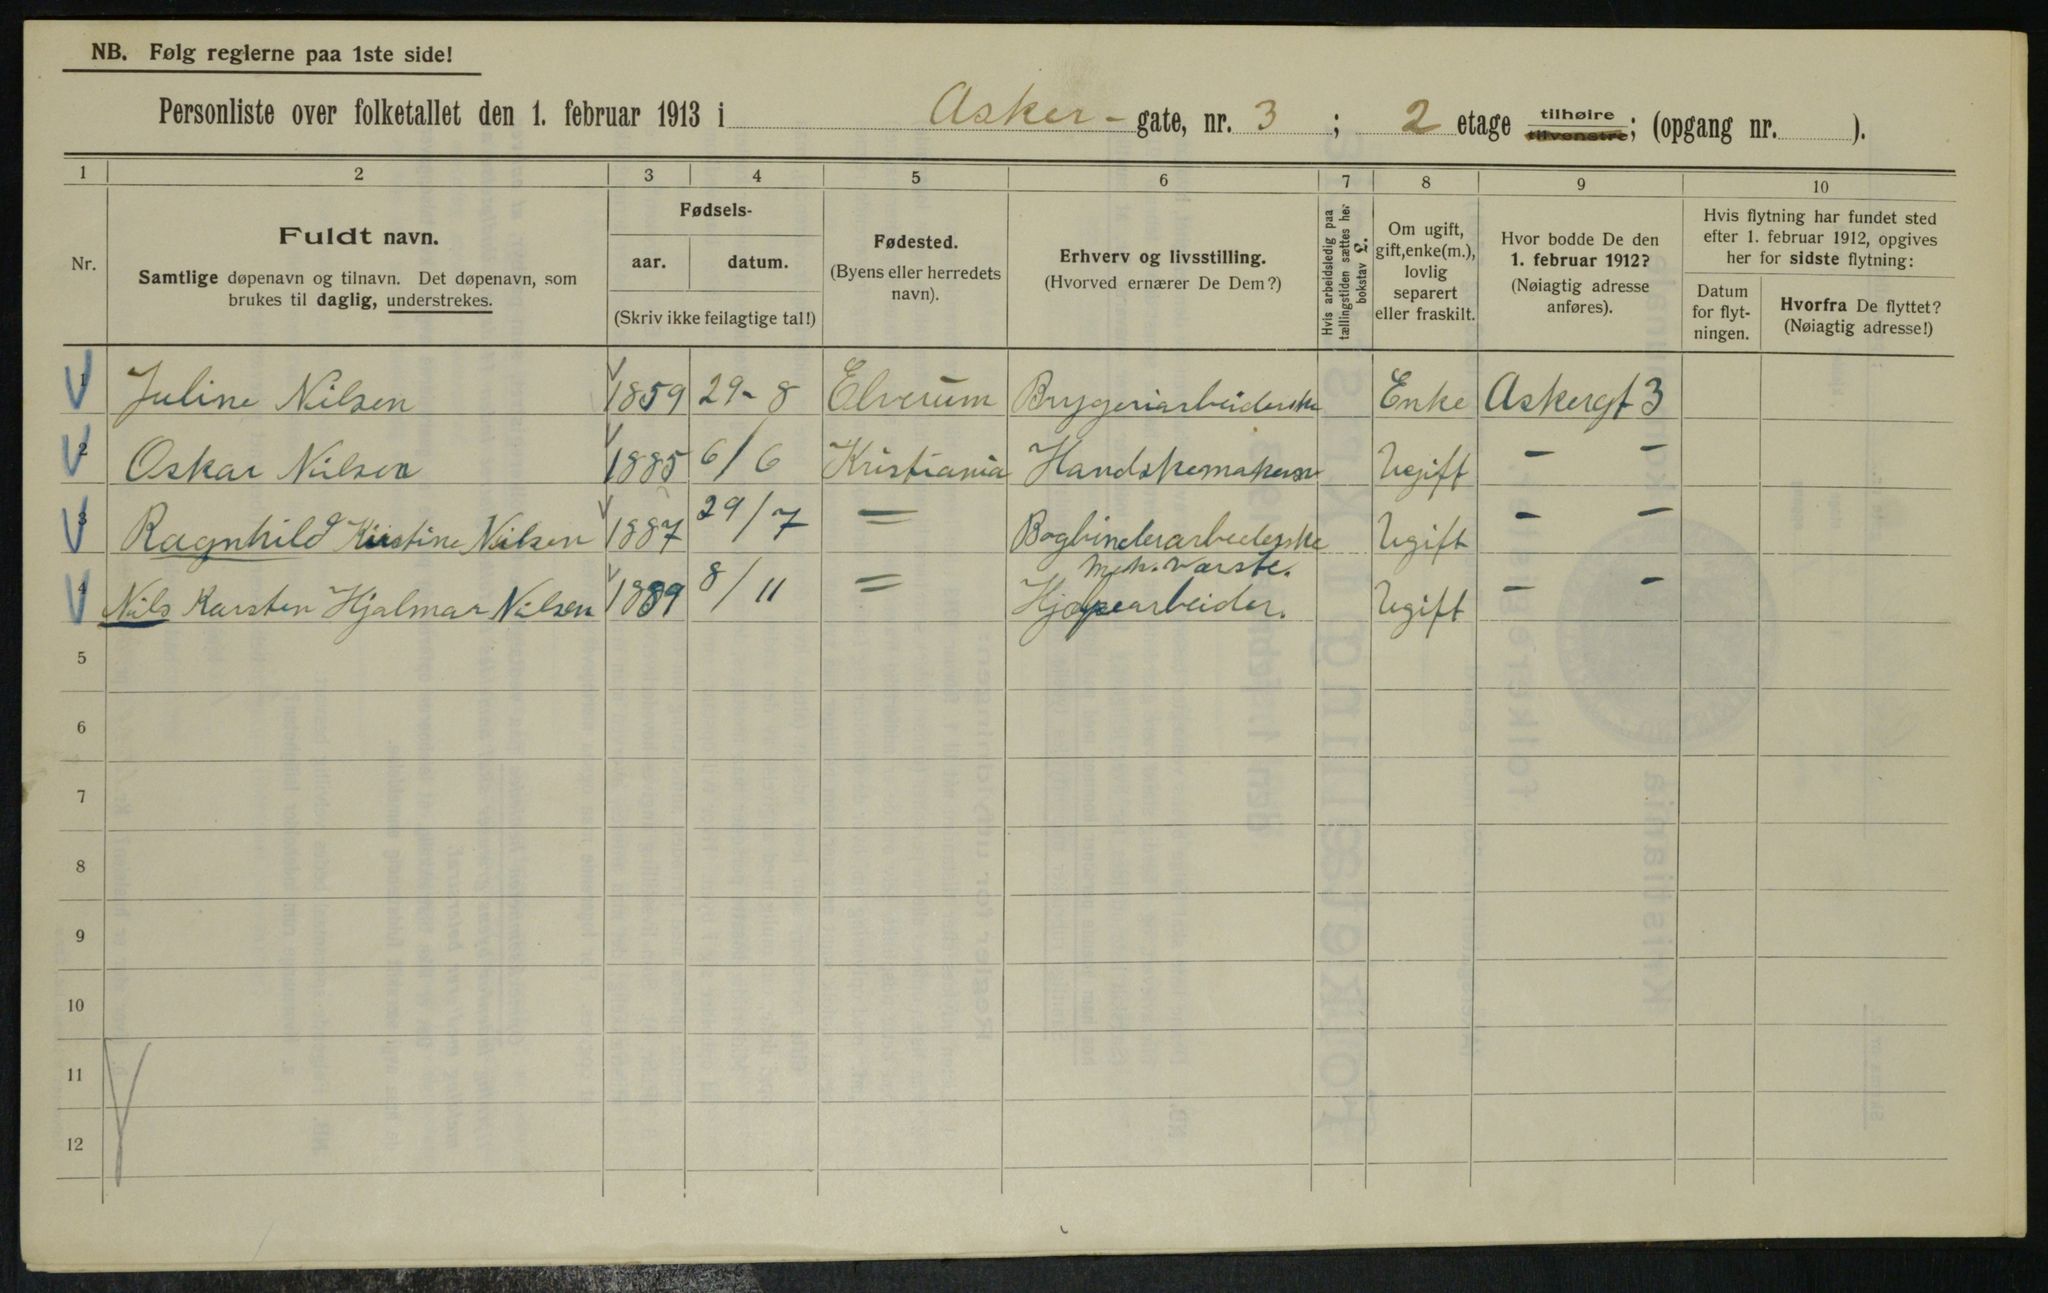 NB. Følg reglerne paa 1ste side!
Personliste over folketallet den 1. februar 1913 i Asker- gate, nr. 3 ; 2 etage tilhøire tilvenstre; (opgang nr. ).
1 2 3 4 5 6 7 8 9 10
Nr.
Fuldt navn.
Samtlige døpenavn og tilnavn. Det døpenavn, som
brukes til daglig, understrekes.
Fødsels-
aar. datum.
(Skriv ikke feilagtige tal!)
Fødested.
(Byens eller herredets
navn).
Erhverv og livsstilling.
(Hvorved ernærer De Dem?)
Hvis arbeidsledig paa
tællingstiden sættes her
bokstav L.
Om ugift,
gift, enke(m.),
lovlig
separert
eller fraskilt.
Hvor bodde De den
1. februar 1912?
(Nøiagtig adresse
anføres).
Hvis flytning har fundet sted
efter 1. februar 1912, opgives
her for sidste flytning:
Datum
for flyt-
ningen.
Hvorfra De flyttet?
(Nøiagtig adresse!)
1 Juline Nilsen 1859 29-8 Elverum Bryggeriarbeiderske Enke Askergt 3
2 Oskar Nilsen 1885 6/6 Kristiania Handskemaker Ugift - -
3 Ragnhild Kirstine Nilsen 1887 29/7 = Bogbinderarbeiderske Ugift - -
Mek. Værste.
4 Nils Karsten Hjalmar Nilsen 1889 8/11 = Hjælpearbeider. Ugift - -
5
6
7
8
9
10
11
12